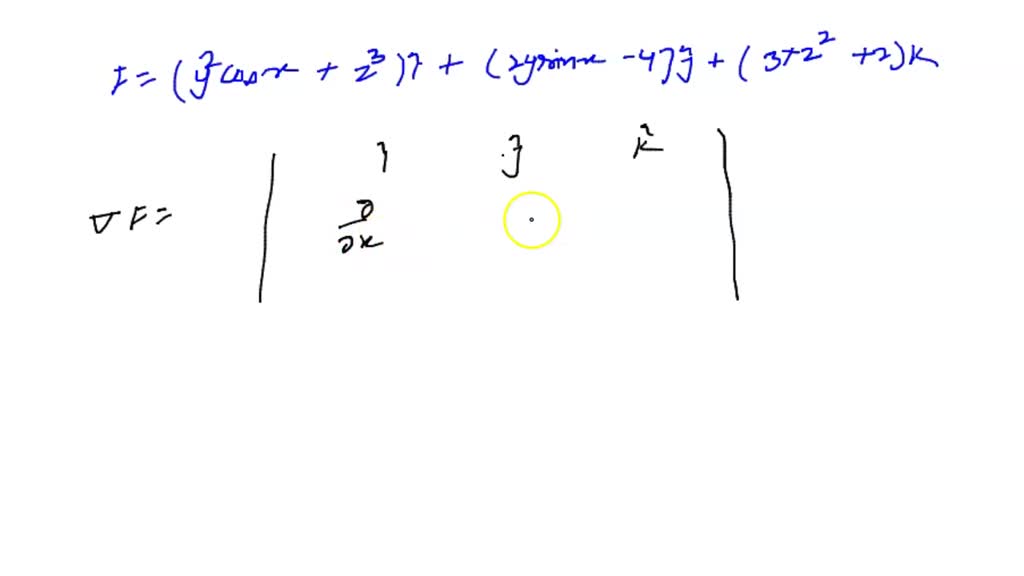 F = (y² cos x + z³) i + (2y sin x - 4) j + (3xz² + 2) k
i j k̂
∇ F =
∂/∂x